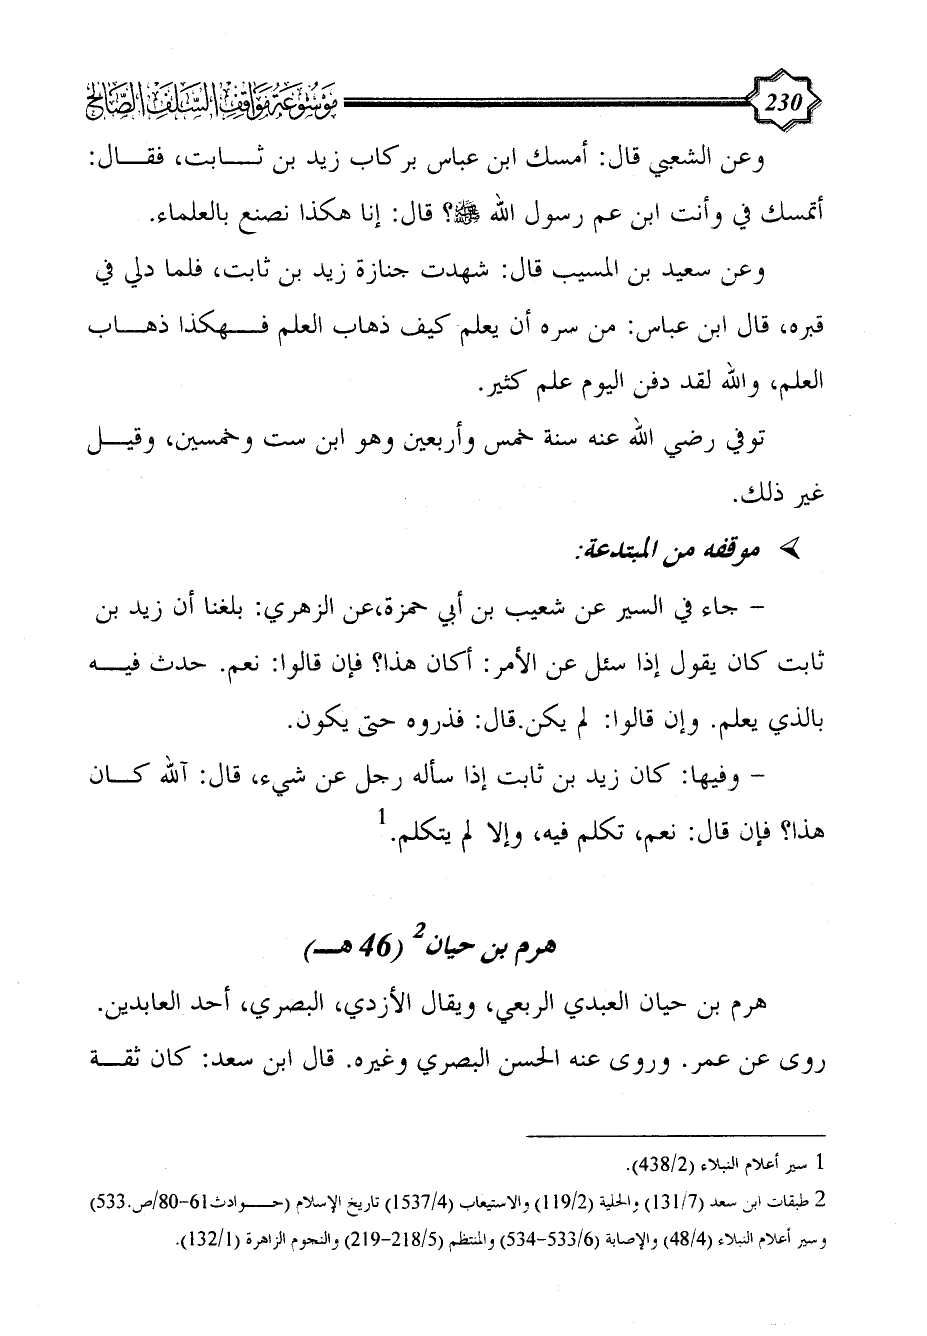 230 موسوعة مواقف السلف الصالح
وعن الشعبي قال: أمسك ابن عباس بركاب زيد بن ثـــابت، فقـــال:
أتمسك في وأنت ابن عم رسول الله ﷺ؟ قال: إنا هكذا نصنع بالعلماء.
وعن سعيد بن المسيب قال: شهدت جنازة زيد بن ثابت، فلما دلي في
قبره، قال ابن عباس: من سره أن يعلم كيف ذهاب العلم فـــهكذا ذهـــاب
العلم، والله لقد دفن اليوم علم كثير.
توفي رضي الله عنه سنة خمس وأربعين وهو ابن ست وخمسين، وقيـــل
غير ذلك.
➢ موقفه من المبتدعة:
– جاء في السير عن شعيب بن أبي حمزة،عن الزهري: بلغنا أن زيد بن
ثابت كان يقول إذا سئل عن الأمر: أكان هذا؟ فإن قالوا: نعم. حدث فيـــه
بالذي يعلم. وإن قالوا: لم يكن.قال: فذروه حتى يكون.
– وفيها: كان زيد بن ثابت إذا سأله رجل عن شيء، قال: آلله كـــان
هذا؟ فإن قال: نعم، تكلم فيه، وإلا لم يتكلم.1
هرم بن حيان2 (46 هـــ)
هرم بن حيان العبدي الربعي، ويقال الأزدي، البصري، أحد العابدين.
روى عن عمر. وروى عنه الحسن البصري وغيره. قال ابن سعد: كان ثقـــة
1 سير أعلام النبلاء (438/2).
2 طبقات ابن سعد (131/7) والحلية (119/2) والاستيعاب (1537/4) تاريخ الإسلام (حـــوادث61-80/ص.533)
وسير أعلام النبلاء (48/4) والإصابة (533/6-534) والمنتظم (218/5-219) والنجوم الزاهرة (132/1).